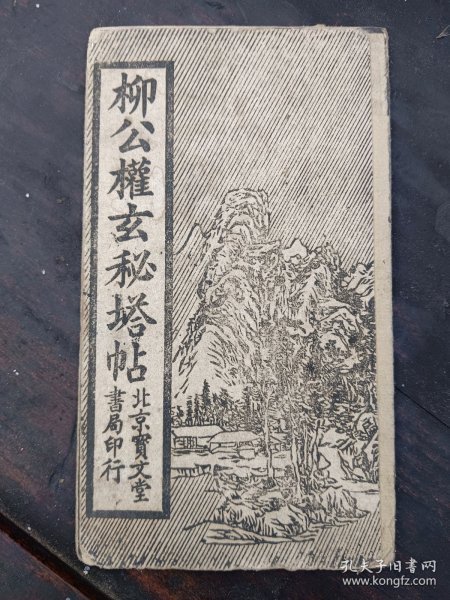 柳公權玄秘塔帖
北京寳文堂
書局印行
孔夫子旧书网
www.kongfz.com